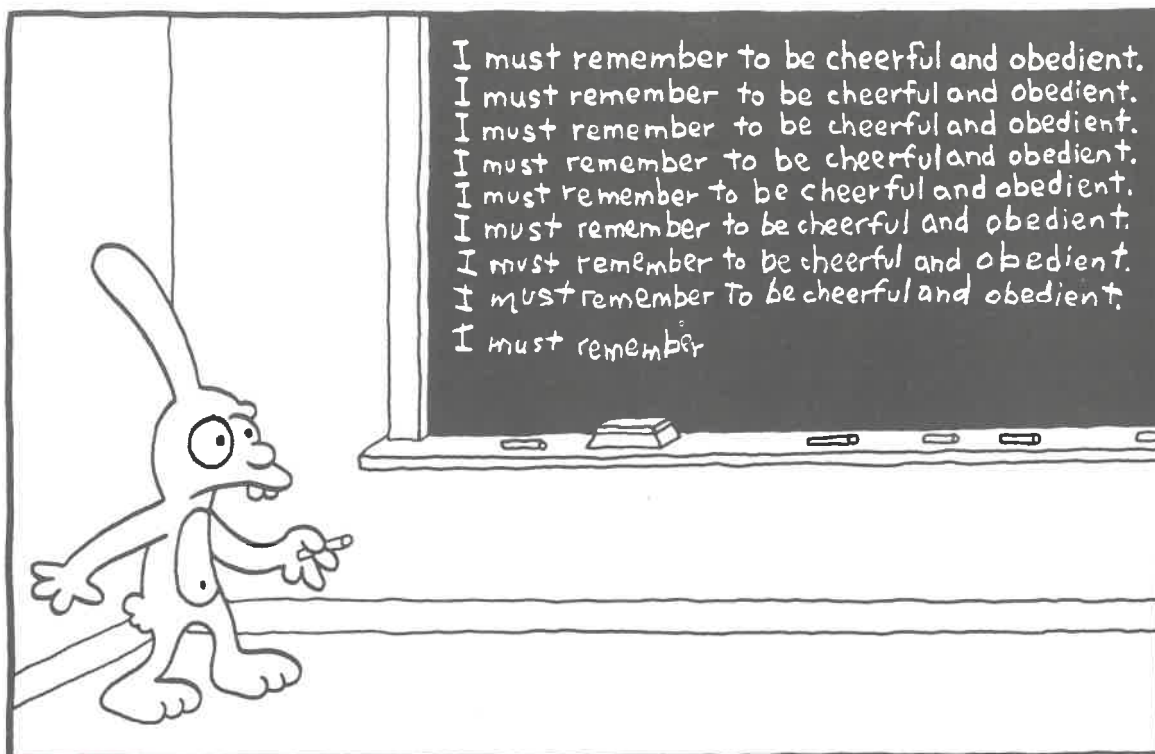 I must remember to be cheerful and obedient.
I must remember to be cheerful and obedient.
I must remember to be cheerful and obedient.
I must remember to be cheerful and obedient.
I must remember to be cheerful and obedient.
I must remember to be cheerful and obedient.
I must remember to be cheerful and obedient.
I must remember to be cheerful and obedient.
I must remember